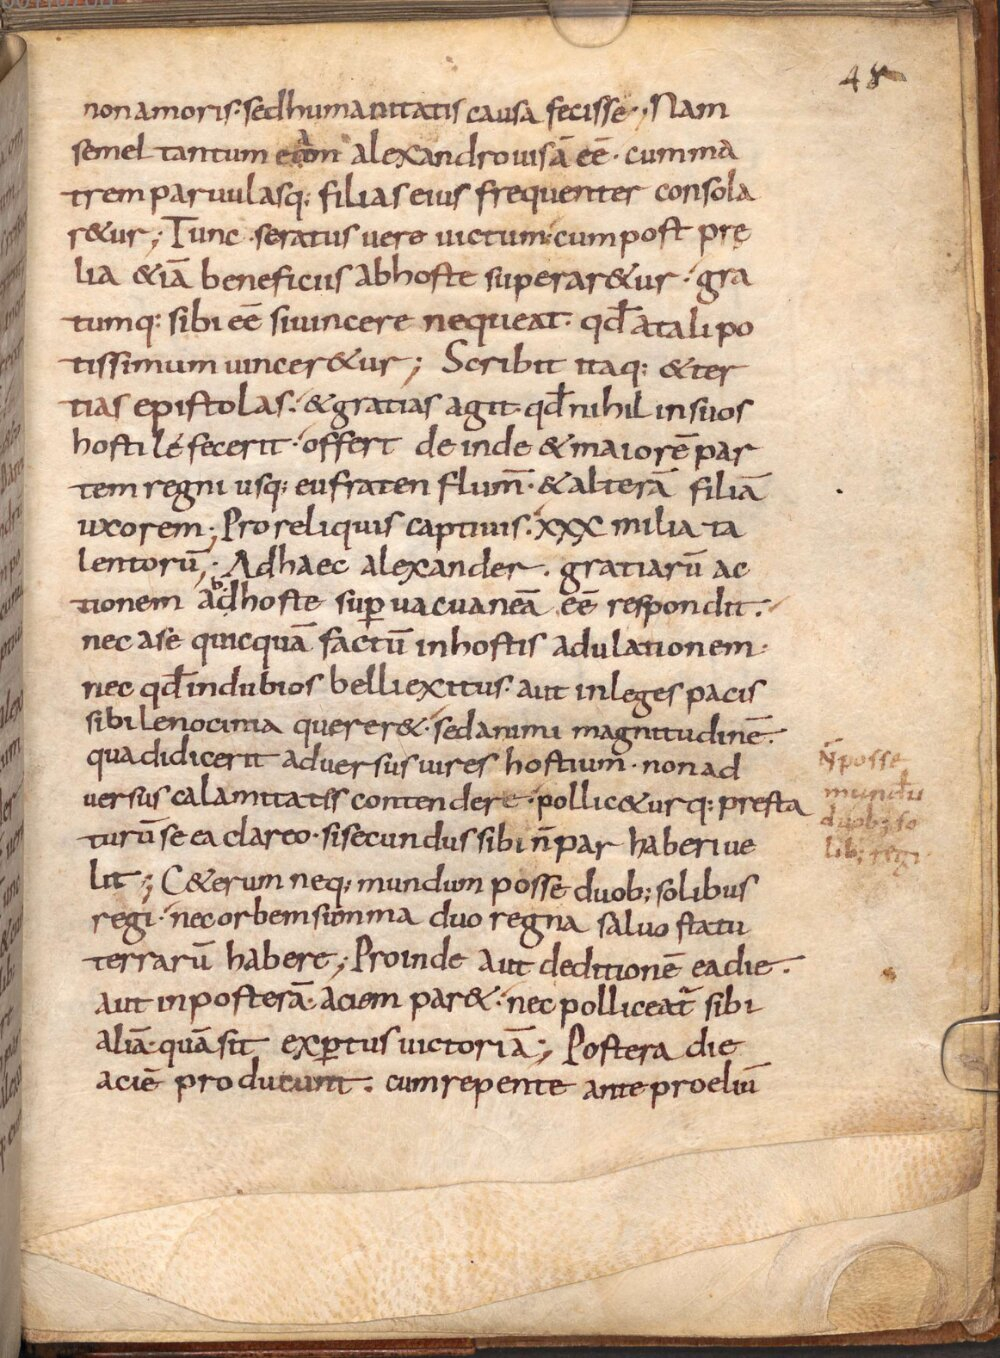 48
non amoris· sed humanitatis causa fecisse·; Nam
semel tantum eam alexandro uisā eē· cum ma
trem paruulasq: filias eius frequenter consola
r&ur; Tunc se ratus uere uictum· cum post prę
lia &iā beneficiis ab hoste superar&ur· gra
tumq: sibi eē si uincere nequeat· qđ a tali po
tissimum uincer&ur; Scribit itaq: & ter
tias epistolas· & gratias agit· qđ nihil in suos
hostile fecerit· offert deinde & maiorē par
tem regni usq; eufraten flum̄· & alterā filiā
uxorem; Pro reliquis captiuis· xxx milia ta
lentorū; Ad haec alexander· gratiarū ac
tionem ab hoste sup uacuaneā eē respondit·
nec a se quicquā factū in hostis adulationem·
nec qđ in dubios belli exitus· aut in leges pacis
sibi lenocinia querer&· sed animi magnitudinē·
qua didicerit aduersus uires hostium· non ad
uersus calamitates contendere· pollic&urq: presta
turū se ea dareo· si secundus sibi n̄ par haberi ue
lit; C&erum neq; mundum posse duob; solibus
regi· nec orbem summa duo regna saluo statu
terrarū habere; Proinde aut deditionē ea die·
aut in posterā· aciem par&· nec polliceat sibi
aliā· quā sit exptus uictoriā; Postera die
aciē producunt· cum repente ante proeliū
N̄ posse
mundū
duob; so
lib; regi